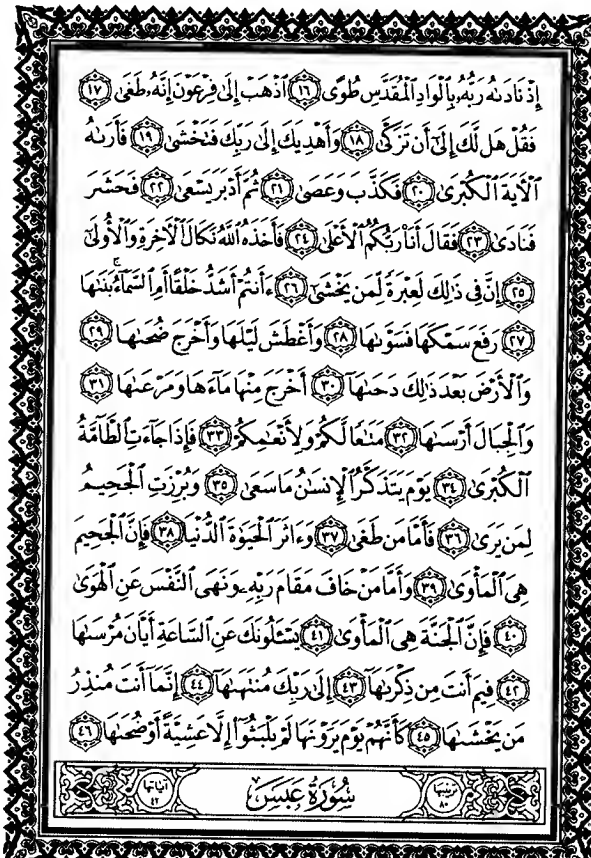 إِذْ نَادَىٰهُ رَبُّهُۥ بِٱلْوَادِ ٱلْمُقَدَّسِ طُوًى ١٦ ٱذْهَبْ إِلَىٰ فِرْعَوْنَ إِنَّهُۥ طَغَىٰ ١٧
فَقُلْ هَل لَّكَ إِلَىٰٓ أَن تَزَكَّىٰ ١٨ وَأَهْدِيَكَ إِلَىٰ رَبِّكَ فَتَخْشَىٰ ١٩ فَأَرَىٰهُ
ٱلْأٓيَةَ ٱلْكُبْرَىٰ ٢٠ فَكَذَّبَ وَعَصَىٰ ٢١ ثُمَّ أَدْبَرَ يَسْعَىٰ ٢٢ فَحَشَرَ
فَنَادَىٰ ٢٣ فَقَالَ أَنَا۠ رَبُّكُمُ ٱلْأَعْلَىٰ ٢٤ فَأَخَذَهُ ٱللَّهُ نَكَالَ ٱلْأٓخِرَةِ وَٱلْأُولَىٰٓ
٢٥ إِنَّ فِى ذَٰلِكَ لَعِبْرَةً لِّمَن يَخْشَىٰٓ ٢٦ ءَأَنتُمْ أَشَدُّ خَلْقًا أَمِ ٱلسَّمَآءُ ۚ بَنَىٰهَا
٢٧ رَفَعَ سَمْكَهَا فَسَوَّىٰهَا ٢٨ وَأَغْطَشَ لَيْلَهَا وَأَخْرَجَ ضُحَىٰهَا ٢٩
وَٱلْأَرْضَ بَعْدَ ذَٰلِكَ دَحَىٰهَآ ٣٠ أَخْرَجَ مِنْهَا مَآءَهَا وَمَرْعَىٰهَا ٣١
وَٱلْجِبَالَ أَرْسَىٰهَا ٣٢ مَتَٰعًا لَّكُمْ وَلِأَنْعَٰمِكُمْ ٣٣ فَإِذَا جَآءَتِ ٱلطَّآمَّةُ
ٱلْكُبْرَىٰ ٣٤ يَوْمَ يَتَذَكَّرُ ٱلْإِنسَٰنُ مَا سَعَىٰ ٣٥ وَبُرِّزَتِ ٱلْجَحِيمُ
لِمَن يَرَىٰ ٣٦ فَأَمَّا مَن طَغَىٰ ٣٧ وَءَاثَرَ ٱلْحَيَوٰةَ ٱلدُّنْيَا ٣٨ فَإِنَّ ٱلْجَحِيمَ
هِىَ ٱلْمَأْوَىٰ ٣٩ وَأَمَّا مَنْ خَافَ مَقَامَ رَبِّهِۦ وَنَهَى ٱلنَّفْسَ عَنِ ٱلْهَوَىٰ
٤٠ فَإِنَّ ٱلْجَنَّةَ هِىَ ٱلْمَأْوَىٰ ٤١ يَسْـَٔلُونَكَ عَنِ ٱلسَّاعَةِ أَيَّانَ مُرْسَىٰهَا
٤٢ فِيمَ أَنتَ مِن ذِكْرَىٰهَآ ٤٣ إِلَىٰ رَبِّكَ مُنتَهَىٰهَآ ٤٤ إِنَّمَآ أَنتَ مُنذِرُ
مَن يَخْشَىٰهَا ٤٥ كَأَنَّهُمْ يَوْمَ يَرَوْنَهَا لَمْ يَلْبَثُوٓا۟ إِلَّا عَشِيَّةً أَوْ ضُحَىٰهَا ٤٦
ترتيبها ٨٠ سُورَةُ عَبَسَ آياتها ٤٢